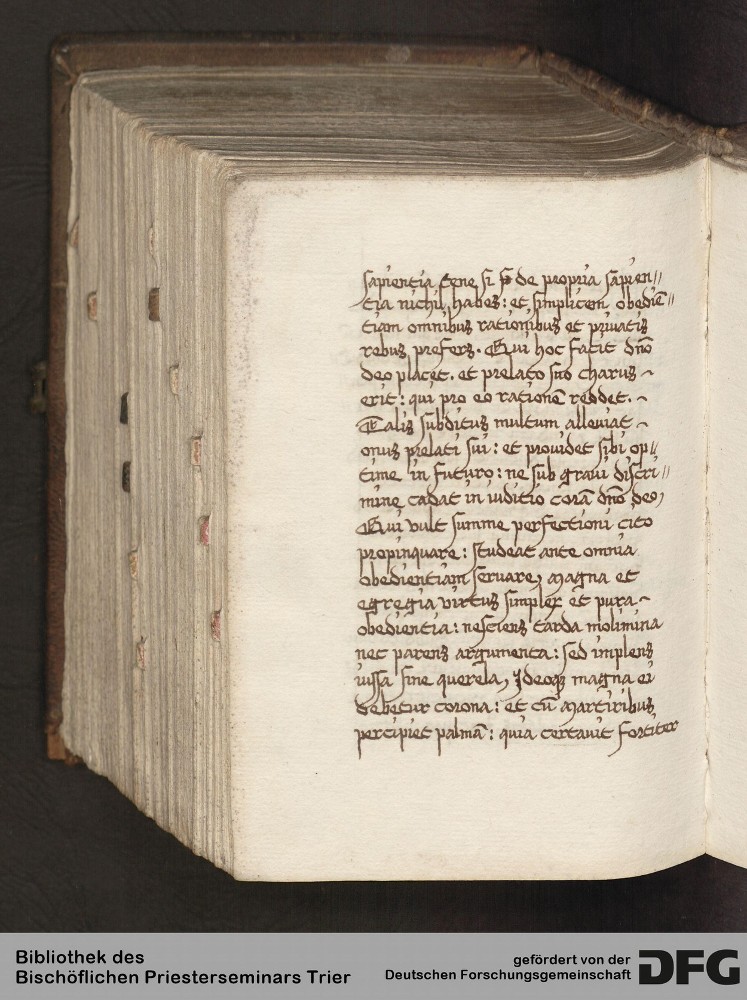 sapientia tene si de propria sapien//
tia nichil habes: et simplicem obediē//
tiam omnibus rationibus et priuatis
rebus prefers. Qui hoc facit dn̄o
deo placet. et prelato suo charus ~
erit: qui pro eo rationē reddet. ~
Talis subditus multum alleuiat ~
onus prelati sui: et prouidet sibi op//
time in futuro: ne sub graui discri//
mine cadat in iuditio corā dn̄o deo,
Qui vult summe perfectioni cito
propinquare: studeat ante omnia
obedientiam seruare, magna et
egregia virtus simplex et pura ~
obedientia: nesciens tarda molimina
nec parens argumenta: sed implens
iussa sine querela, Ideoqꝫ magna ei
debetur corona: et cū martiribus
percipiet palmā: quia certauit fortiter
Bibliothek des
Bischöflichen Priesterseminars Trier
gefördert von der
Deutschen Forschungsgemeinschaft
DFG